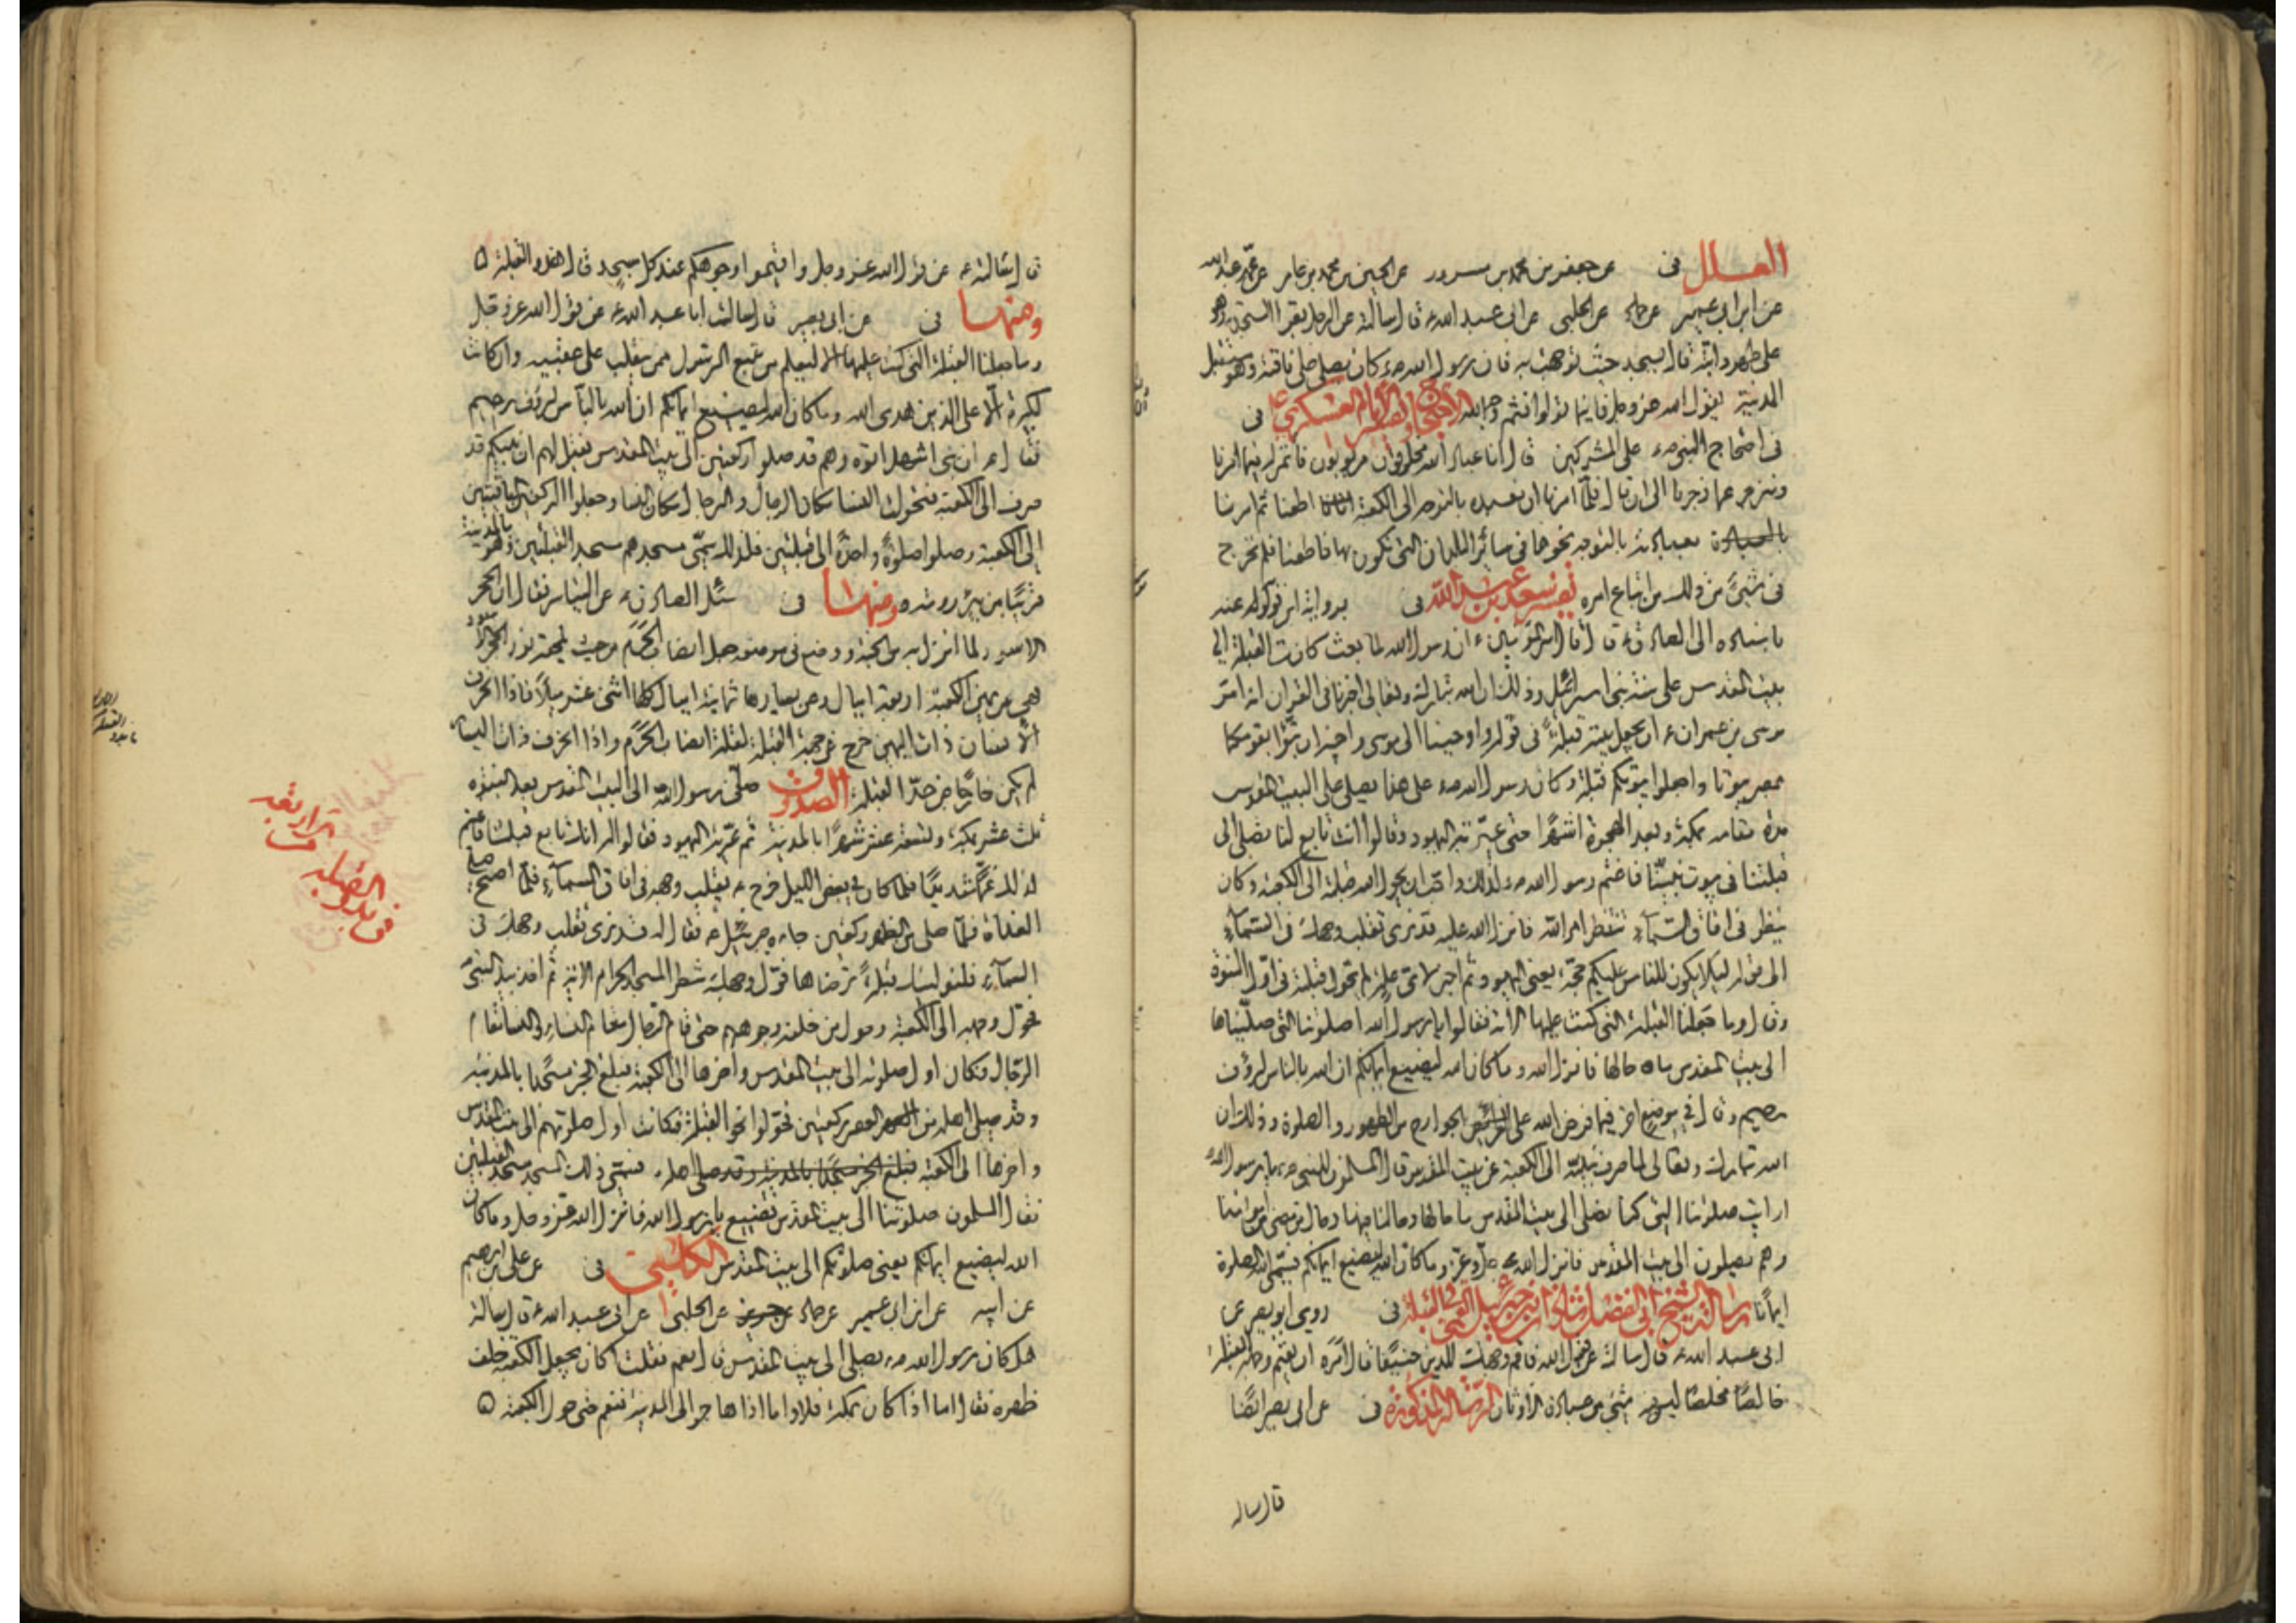 العلل فى عن جعفر بن محمد بن مسرور عن الحسين بن محمد بن عامر عن عمه عبد الله
عن ابن ابى عمير عن حماد عن الحلبى عن ابى عبد الله ع قال سالته عن الرجل يقرا السجدة وهو
على ظهر دابته قال يسجد حيث توجهت به فان رسول الله ص كان يصلى على ناقته وهو مستقبل
المدينة يقول الله عز وجل فاينما تولوا فثم وجه الله الاحتجاج الامام العسكرى ع فى
فى احتجاج النبى ص على المشركين قال انا عباد الله مخلوقون مربوبون ناتمر له فيما امرنا
وننزجر عما زجرنا الى ان قال فلما امرنا ان نعبده بالتوجه الى الكعبة اطعنا ثم امرنا
بعبادته بالتوجه نحوها فى سائر البلدان التى نكون بها فاطعنا فلم نخرج
فى شئ من ذلك من اتباع امره تفسير سعد بن عبد الله فى برواية ابن قولويه عنه
باسناده الى الصادق ع قال قال امير المؤمنين ع ان رسول الله لما بعث كانت القبلة الى
بيت المقدس على سنة بنى اسرائيل وذلك ان الله تبارك وتعالى اخبرنا فى القران انه امر
موسى بن عمران ع ان يجعل بيته قبلة فى قوله واوحينا الى موسى واخيه ان تبوا لقومكما
بمصر بيوتا واجعلوا بيوتكم قبلة وكان رسول الله ص على هذا يصلى الى البيت المقدس
مدة مقامه بمكة وبعد الهجرة اشهرا حتى عيرته اليهود وقالوا انت تابع لنا تصلى الى
قبلتنا فى بيوت نبينا فاغتم رسول الله ص لذلك واحب ان يحول الله قبلته الى الكعبة وكان
ينظر فى افاق السماء ينتظر امر الله فانزل الله عليه قد نرى تقلب وجهك فى السماء
الى قوله لئلا يكون للناس عليكم حجة يعنى اليهود ثم اخبر لاى علة لم يحول قبلته فى اول النبوة
وقال وما جعلنا القبلة التى كنت عليها الاية فقالوا يا رسول الله صلوتنا التى صليناها
الى بيت المقدس ما حالها فانزل الله وما كان الله ليضيع ايمانكم ان الله بالناس لرؤف
رحيم وقال فى موضع اخر فيما فرض الله على الجوارح من الطهور والصلوة وذلك ان
الله تبارك وتعالى لما صرف نبيه الى الكعبة عن بيت المقدس قال المسلمون للنبى ص يا رسول الله
ارايت صلوتنا التى كنا نصلى الى بيت المقدس ما حالها وحالنا فيها وحال من مضى من امواتنا
وهم يصلون الى بيت المقدس فانزل الله جل وعز وما كان الله ليضيع ايمانكم فسمى الصلوة
ايمانا رسالة الشيخ ابى الفضل شاذان بن جبرئيل القمى فى القبلة فى روى ابو بصير عن
ابى عبد الله ع قال سالته عن قول الله فاقم وجهك للدين حنيفا قال امره ان يقيم وجهه للقبلة
خالصا مخلصا ليس فيه شئ من عبادة الاوثان الرسالة المذكورة فى عن ابى بصير ايضا
قال ساله
قال سالته ع عن قول الله عز وجل واقيموا وجوهكم عند كل مسجد قال هذه القبلة ٥
ومنها فى عن ابى بصير قال سالت ابا عبد الله ع عن قول الله عز وجل
وما جعلنا القبلة التى كنت عليها الا لنعلم من يتبع الرسول ممن ينقلب على عقبيه وان كانت
لكبيرة الا على الذين هدى الله وما كان الله ليضيع ايمانكم ان الله بالناس لرؤف رحيم
فقال ع ان بنى اشهل اتوه وهم قد صلوا ركعتين الى بيت المقدس فقيل لهم ان نبيكم قد
صرف الى الكعبة فتحول النسا مكان الرجال والرجال مكان النسا وجعلوا الركعتين الباقيتين
الى الكعبة وصلوا صلوة واحدة الى قبلتين فلذلك سمى مسجدهم مسجد القبلتين وهو بالمدينة
قريبا من بئر رومه ومنها فى سئل الصادق ع عن التياسر فقال ان الحجر
الاسود لما انزل به من الجنة ووضع فى موضعه جعل انصاب الحرم من حيث لحقه نور الحجر الاسود
فهى عن يمين الكعبة اربعة اميال وعن يسارها ثمانية اميال كلها اثنى عشر ميلا فاذا انحرف
الانسان ذات اليمين خرج عن حد القبلة لقلة انصاب الحرم واذا انحرف ذات اليسار
لم يكن خارجا عن حد القبلة الصدوق صلى رسول الله الى البيت المقدس بعد النبوة
ثلث عشر بمكة وتسعة عشر شهرا بالمدينة ثم عيرته اليهود فقالوا له انك تابع قبلتنا فاغتم
لذلك غما شديدا فلما كان فى بعض الليل خرج ع يقلب وجهه فى افاق السماء فلما اصبح صلى
الغداة فلما صلى من الظهر ركعتين جاءه جبرئيل ع فقال له قد نرى تقلب وجهك فى
السماء فلنولينك قبلة ترضاها فول وجهك شطر المسجد الحرام الاية ثم اخذ بيد النبى
فحول وجهه الى الكعبة وحول من خلفه وجوههم حتى قام الرجال مقام النساء والنسا مقام
الرجال فكان اول صلوته الى بيت المقدس واخرها الى الكعبة فبلغ الخبر مسجدا بالمدينة
وقد صلى اهله من العصر ركعتين فحولوا نحو القبلة فكانت اول صلوتهم الى بيت المقدس
واخرها الى الكعبة فبلغ الخبر مسجدا بالمدينة وقد صلى اهله فسمى ذلك المسجد مسجد القبلتين
فقال المسلمون صلوتنا الى بيت المقدس تضيع يا رسول الله فانزل الله عز وجل وما كان
الله ليضيع ايمانكم يعنى صلوتكم الى بيت المقدس الكلينى فى عن على بن ابرهيم
عن ابيه عن ابن ابى عمير عن حماد عن الحلبى عن ابى عبد الله ع قال سالته
هل كان رسول الله ص يصلى الى بيت المقدس قال نعم فقلت اكان يجعل الكعبة خلف
ظهره فقال اما اذا كان بمكة فلا واما اذا هاجر الى المدينة فنعم حتى حول الكعبة ٥